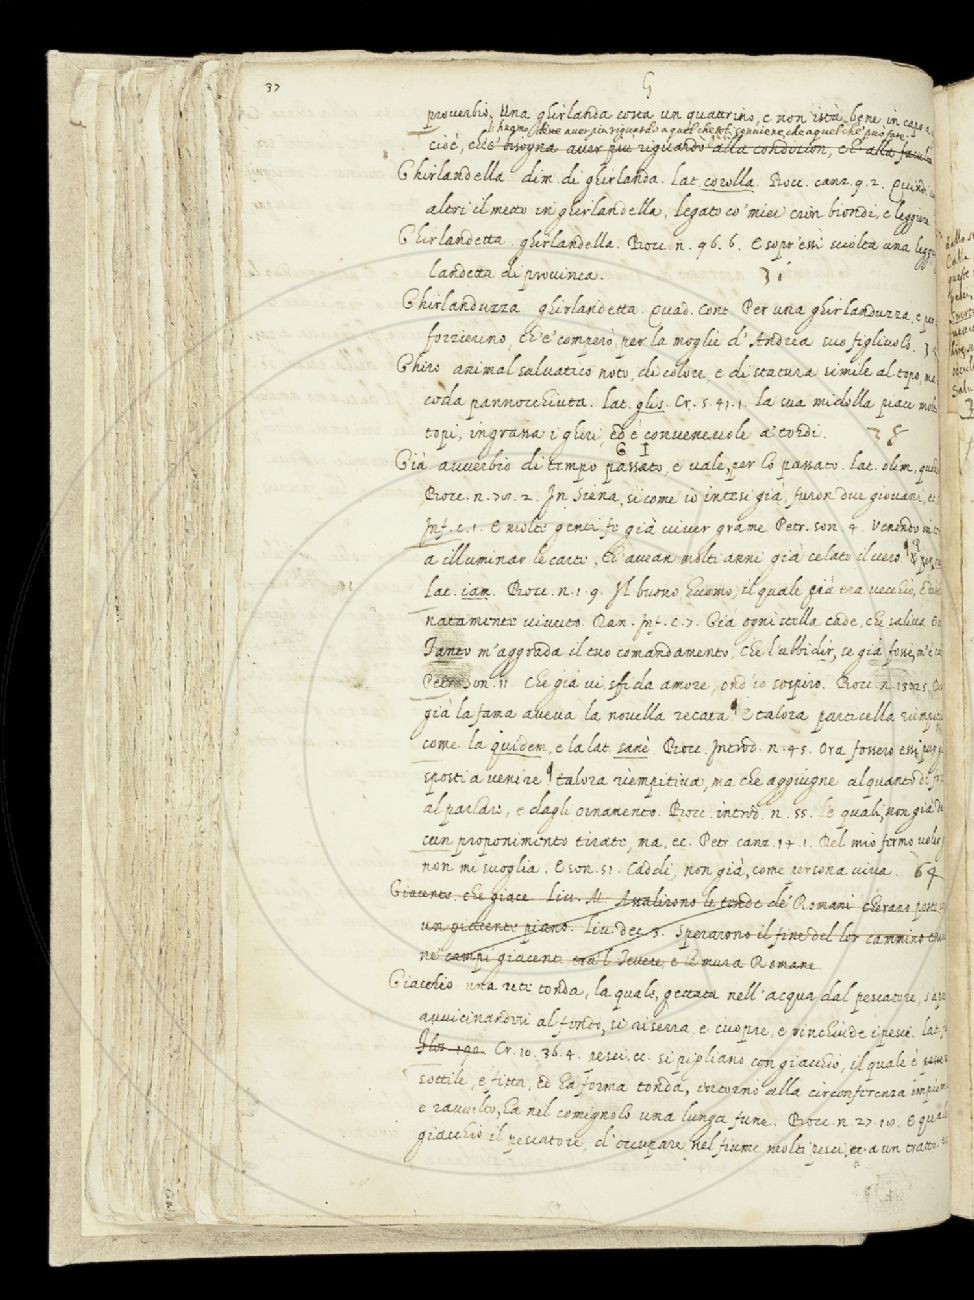 37
G
prouerbio, Una ghirlanda costa un quattrino, e non istà bene in capo a
l'huomo deue auer più riguardo a quel che si conuiene, che a quel che può fare.
cioè, ch'e' bisogna auer più riguardo alla condizion, che alla facul
Ghirlandella dim. di ghirlanda. Lat. corolla. Bocc. canz. 9. 2. Quindi
altri il metto in ghirlandella, legato co' miei crin biondi, e leggieri
Ghirlandetta ghirlandella. Bocc. n. 96. 6. E sopr'essi sciolta una leggi
landetta di prouinca.
Ghirlanduzza ghirlandetta. Quad. Cont. Per una ghirlanduzza, e per
forzierino, ch'e' comperò, per la moglie d'Andrea suo figliuolo.
Ghiro animal saluatico noto, di colore e di statura simile al topo, ma
coda pannocchiuta. Lat. glis. Cr. 5. 41. 1. La sua midolla piace molto
topi, ingrassa i ghiri, ed è conueneuole a' tordi.
G I
Già auuerbio di tempo passato, e vale, per lo passato. Lat. olim,
Bocc. n. 2. In Siena, sì come io intesi già, furon due giouani,
Inf. c. 1. E molte genti fe già viuer grame. Petr. son. 4. Venendo in
a illuminar le carte, Ch'auean molti anni già celato il vero
Lat. iam. Bocc. n. 1. 9. Il buono huomo, il quale già era vecchio,
natamente viuuto. Dan. Inf. c. 7. Già ogni stella cade, che saliua
Tanto m'aggrada il tuo comandamento, Che l'ubbidir, se già fosse, m'è
Petr. son. 11. Che già vi sfida amore, ond'io sospiro. Bocc. n.
già la fama aueua la nouella recata. E talora particella riempit
come la quidem, e la lat. sanè. Bocc. Introd. n. 45. Ora fossero essi pur già
sposti a venire talora riempitiua, ma che aggiugne alquanto di
al parlare, e dagli ornamento. Bocc. introd. n. 55. le quali, non già da
cun proponimento tirate, ma, ec. Petr. canz. 14. 1. Del mio fermo voler
non mi suoglia. E son. 51. Caddi, non già, come persona viua. 64
Giacente. che giace. Liu. M. Assalirono le tende de' Romani cherano poste
un giacente piano. Liu. dec. 3. Sperarono il fine del lor cammino
ne campi giacenti tra'l Teuere, e le mura Romane.
Giacchio una rete tonda, la quale, gettata nell'acqua dal pescatore, s'apre
auuicinandosi al fondo, si riserra, e cuopre, e rinchiude i pesci. Lat.
Cr. 10. 36. 4. pesci, ec. si pigliano con giacchio, il quale è
sottile, e fitta, ed ha forma tonda, intorno alla circonferenza
e rauuolto, ha nel comignolo una lunga fune. Bocc. n. 27. E
giacchio il pescatore, d'occupare nel fiume molti pesci a un tratto